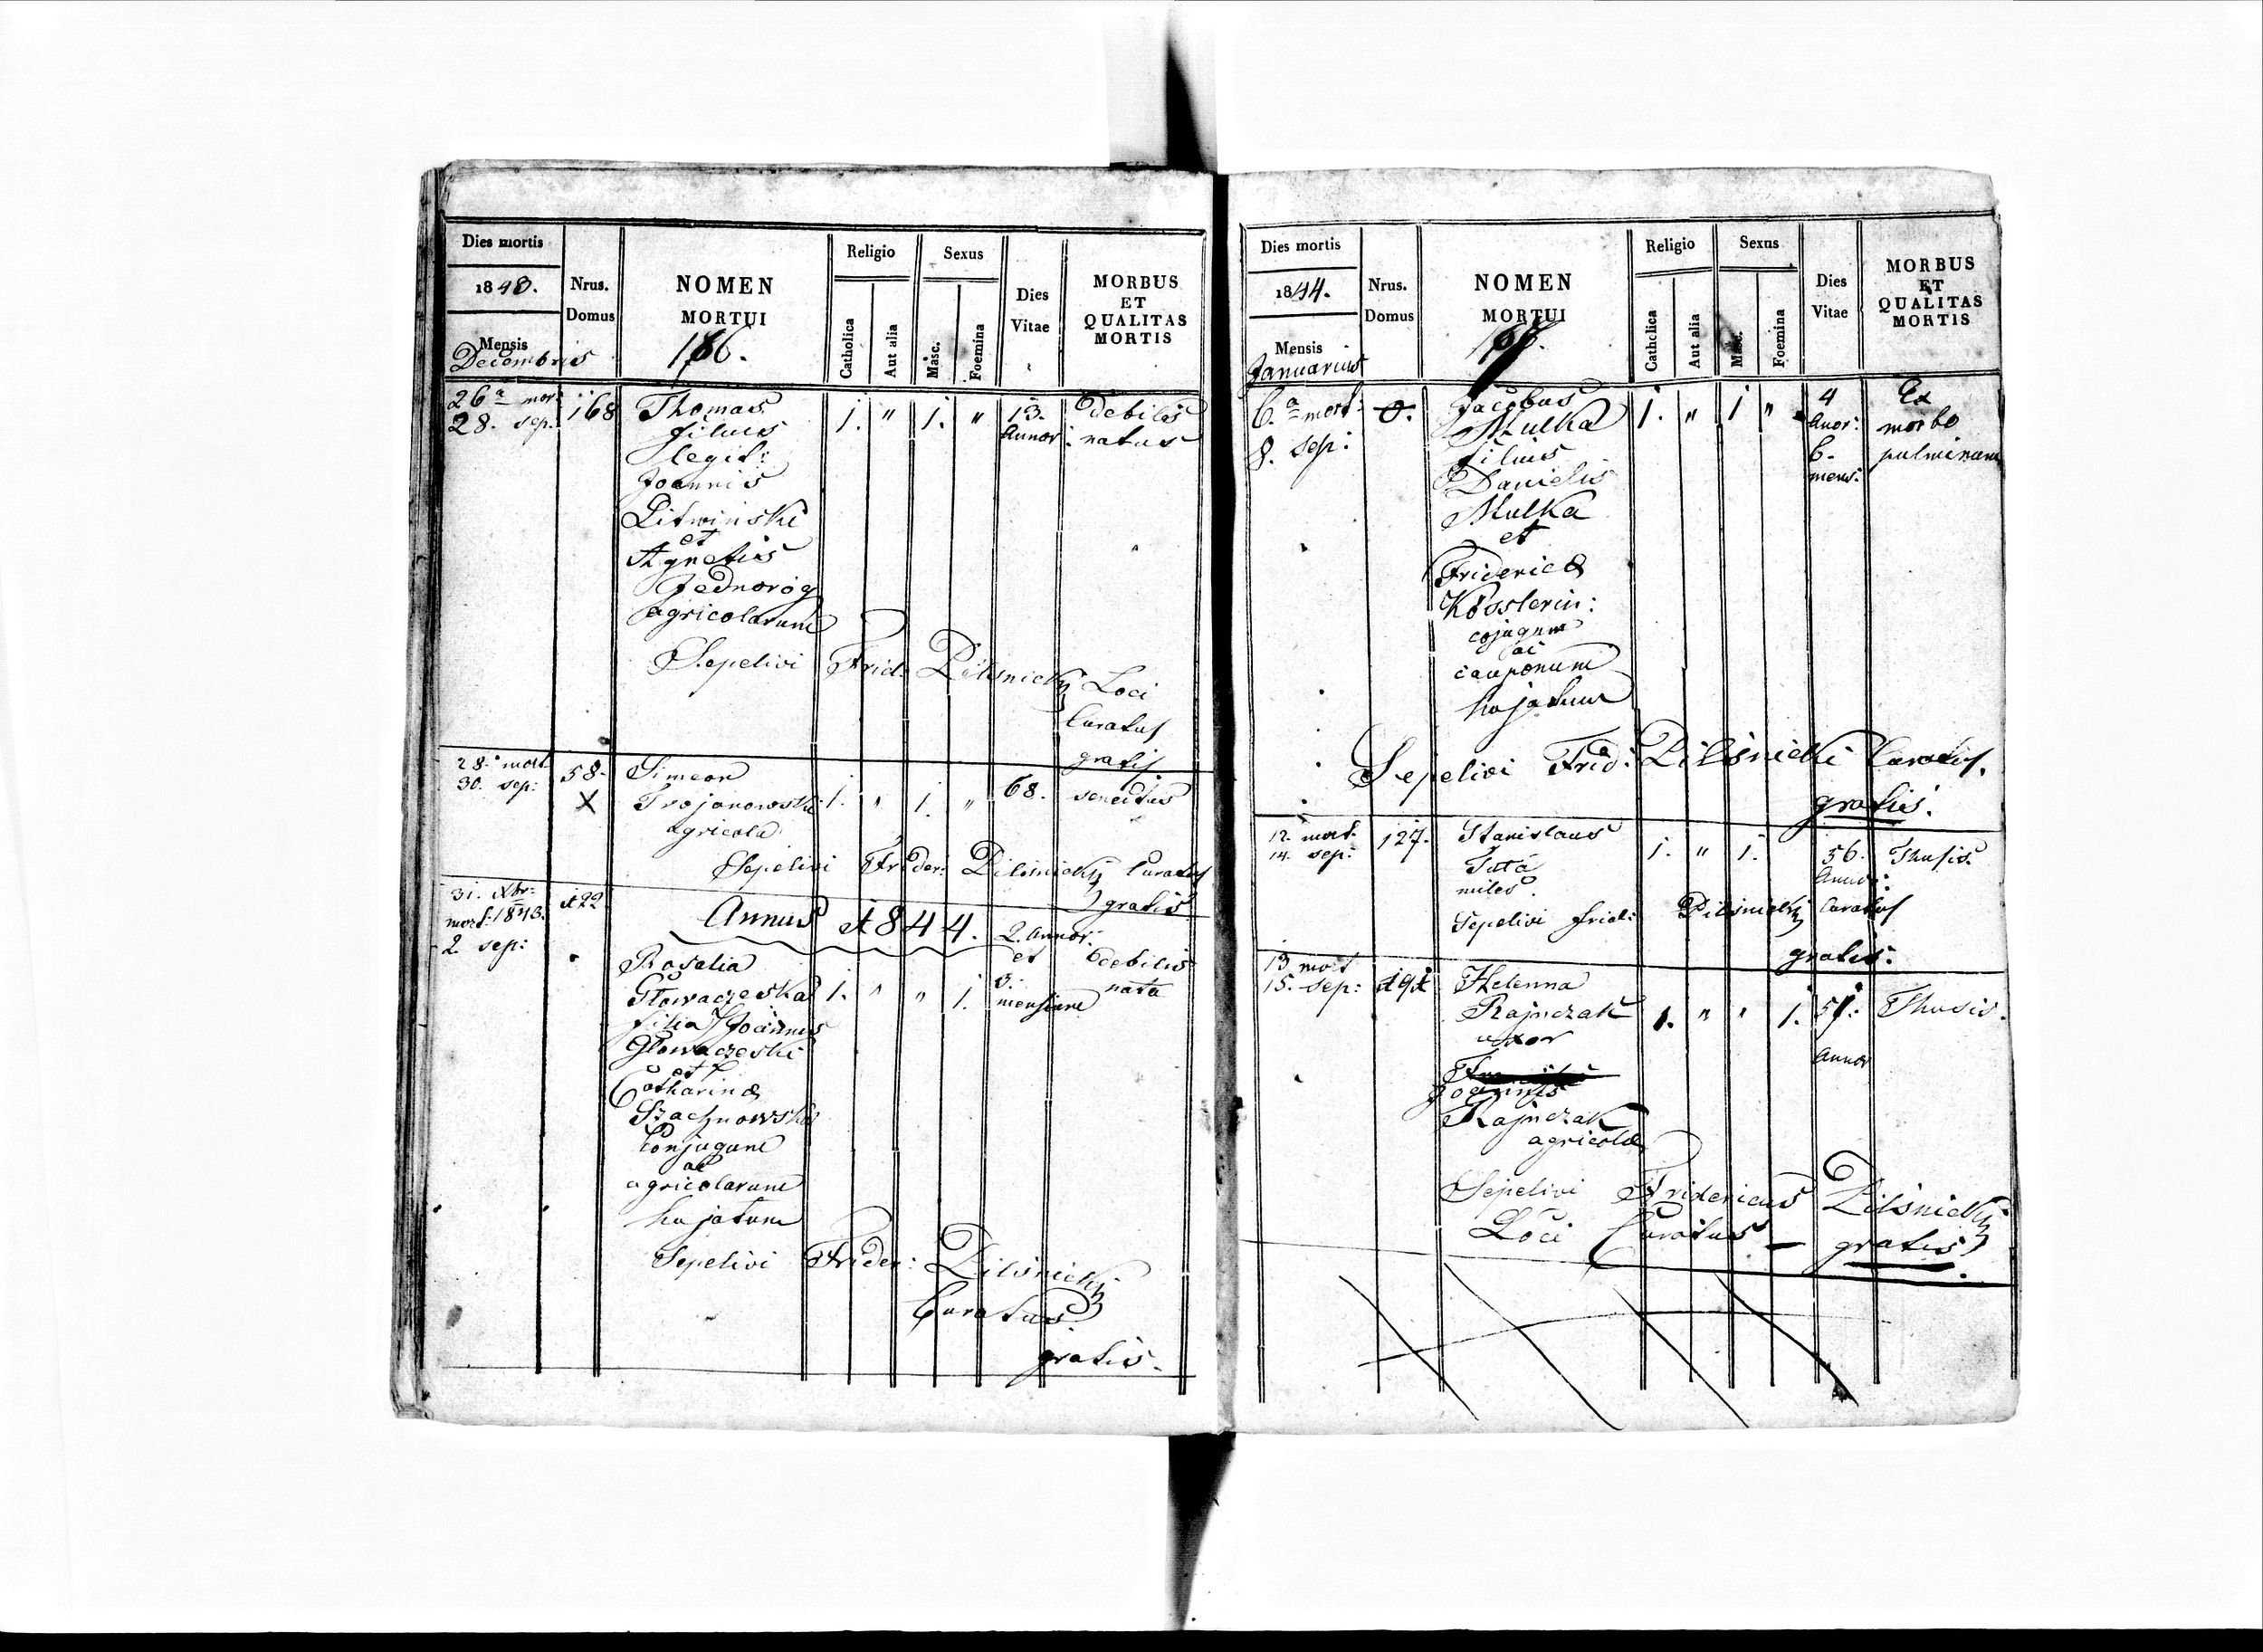 Dies mortis
1843.
Mensis
Decembris
Nrus.
Domus
NOMEN
MORTUI
186.
Religio
Catholica
Aut alia
Sexus
Masc.
Foemina
Dies
Vitae
MORBUS
ET
QUALITAS
MORTIS
26a mor: 168 Thomas 1. " 1. " 13. debilis
28. sep: filius Annor: natus
legit:
Joannis
Litwinski
et
Agnetis
Jednorog
agricolarum
Sepelivi Frid: Pilśnicky Loci
Curatus
gratis
28. mort 58. Simeon
30. sep: X Trojanowski 1. " 1. " 68. senectus
agricola
Sepelivi Frider: Pilsnicky Curatus
gratis
31. Xbr: 122 Annus 1844.
mort: 1843.
2. sep: 2. Annor:
et debilis
Rosalia 3. nata
Głowaczeska 1. " " 1. mensium
filia Joannis
Głowaczeski
et
Catharinæ
Szachnowska
Conjugum
ac
agricolarum
hujatum
Sepelivi Frider: Pilśnicky
Curatus.
gratis.
Dies mortis
1844.
Mensis
Januarius
Nrus.
Domus
NOMEN
MORTUI
Religio
Catholica
Aut alia
Sexus
Masc.
Foemina
Dies
Vitae
MORBUS
ET
QUALITAS
MORTIS
6.a mort: 0. Jacobus 1. " 1 " 4 Ex
8. sep: Mulka Anor: morbo
filius 6. pulminum
Danielis mens:
Mulka
et
Fridericæ
Kösslerin:
cojugum
ac
cauponum
hujatum
Sepelivi Frid: Pilśnicki Curatus.
gratis.
12. mort. 127. Stanislaus 1. " 1. 56. Thusis.
14. sep: Tuta Annor:
miles
Sepelivi Frid: Pilśnicky Curatus
gratis.
13 mort 191 Helenna 1. " " 1. 51: Thusis.
15. sep: Rajnczak Annor
uxor
Joannis
Rajnczak
agricolæ
Sepelivi Fridericus Pilśnicky
Loci Curatus — gratis.